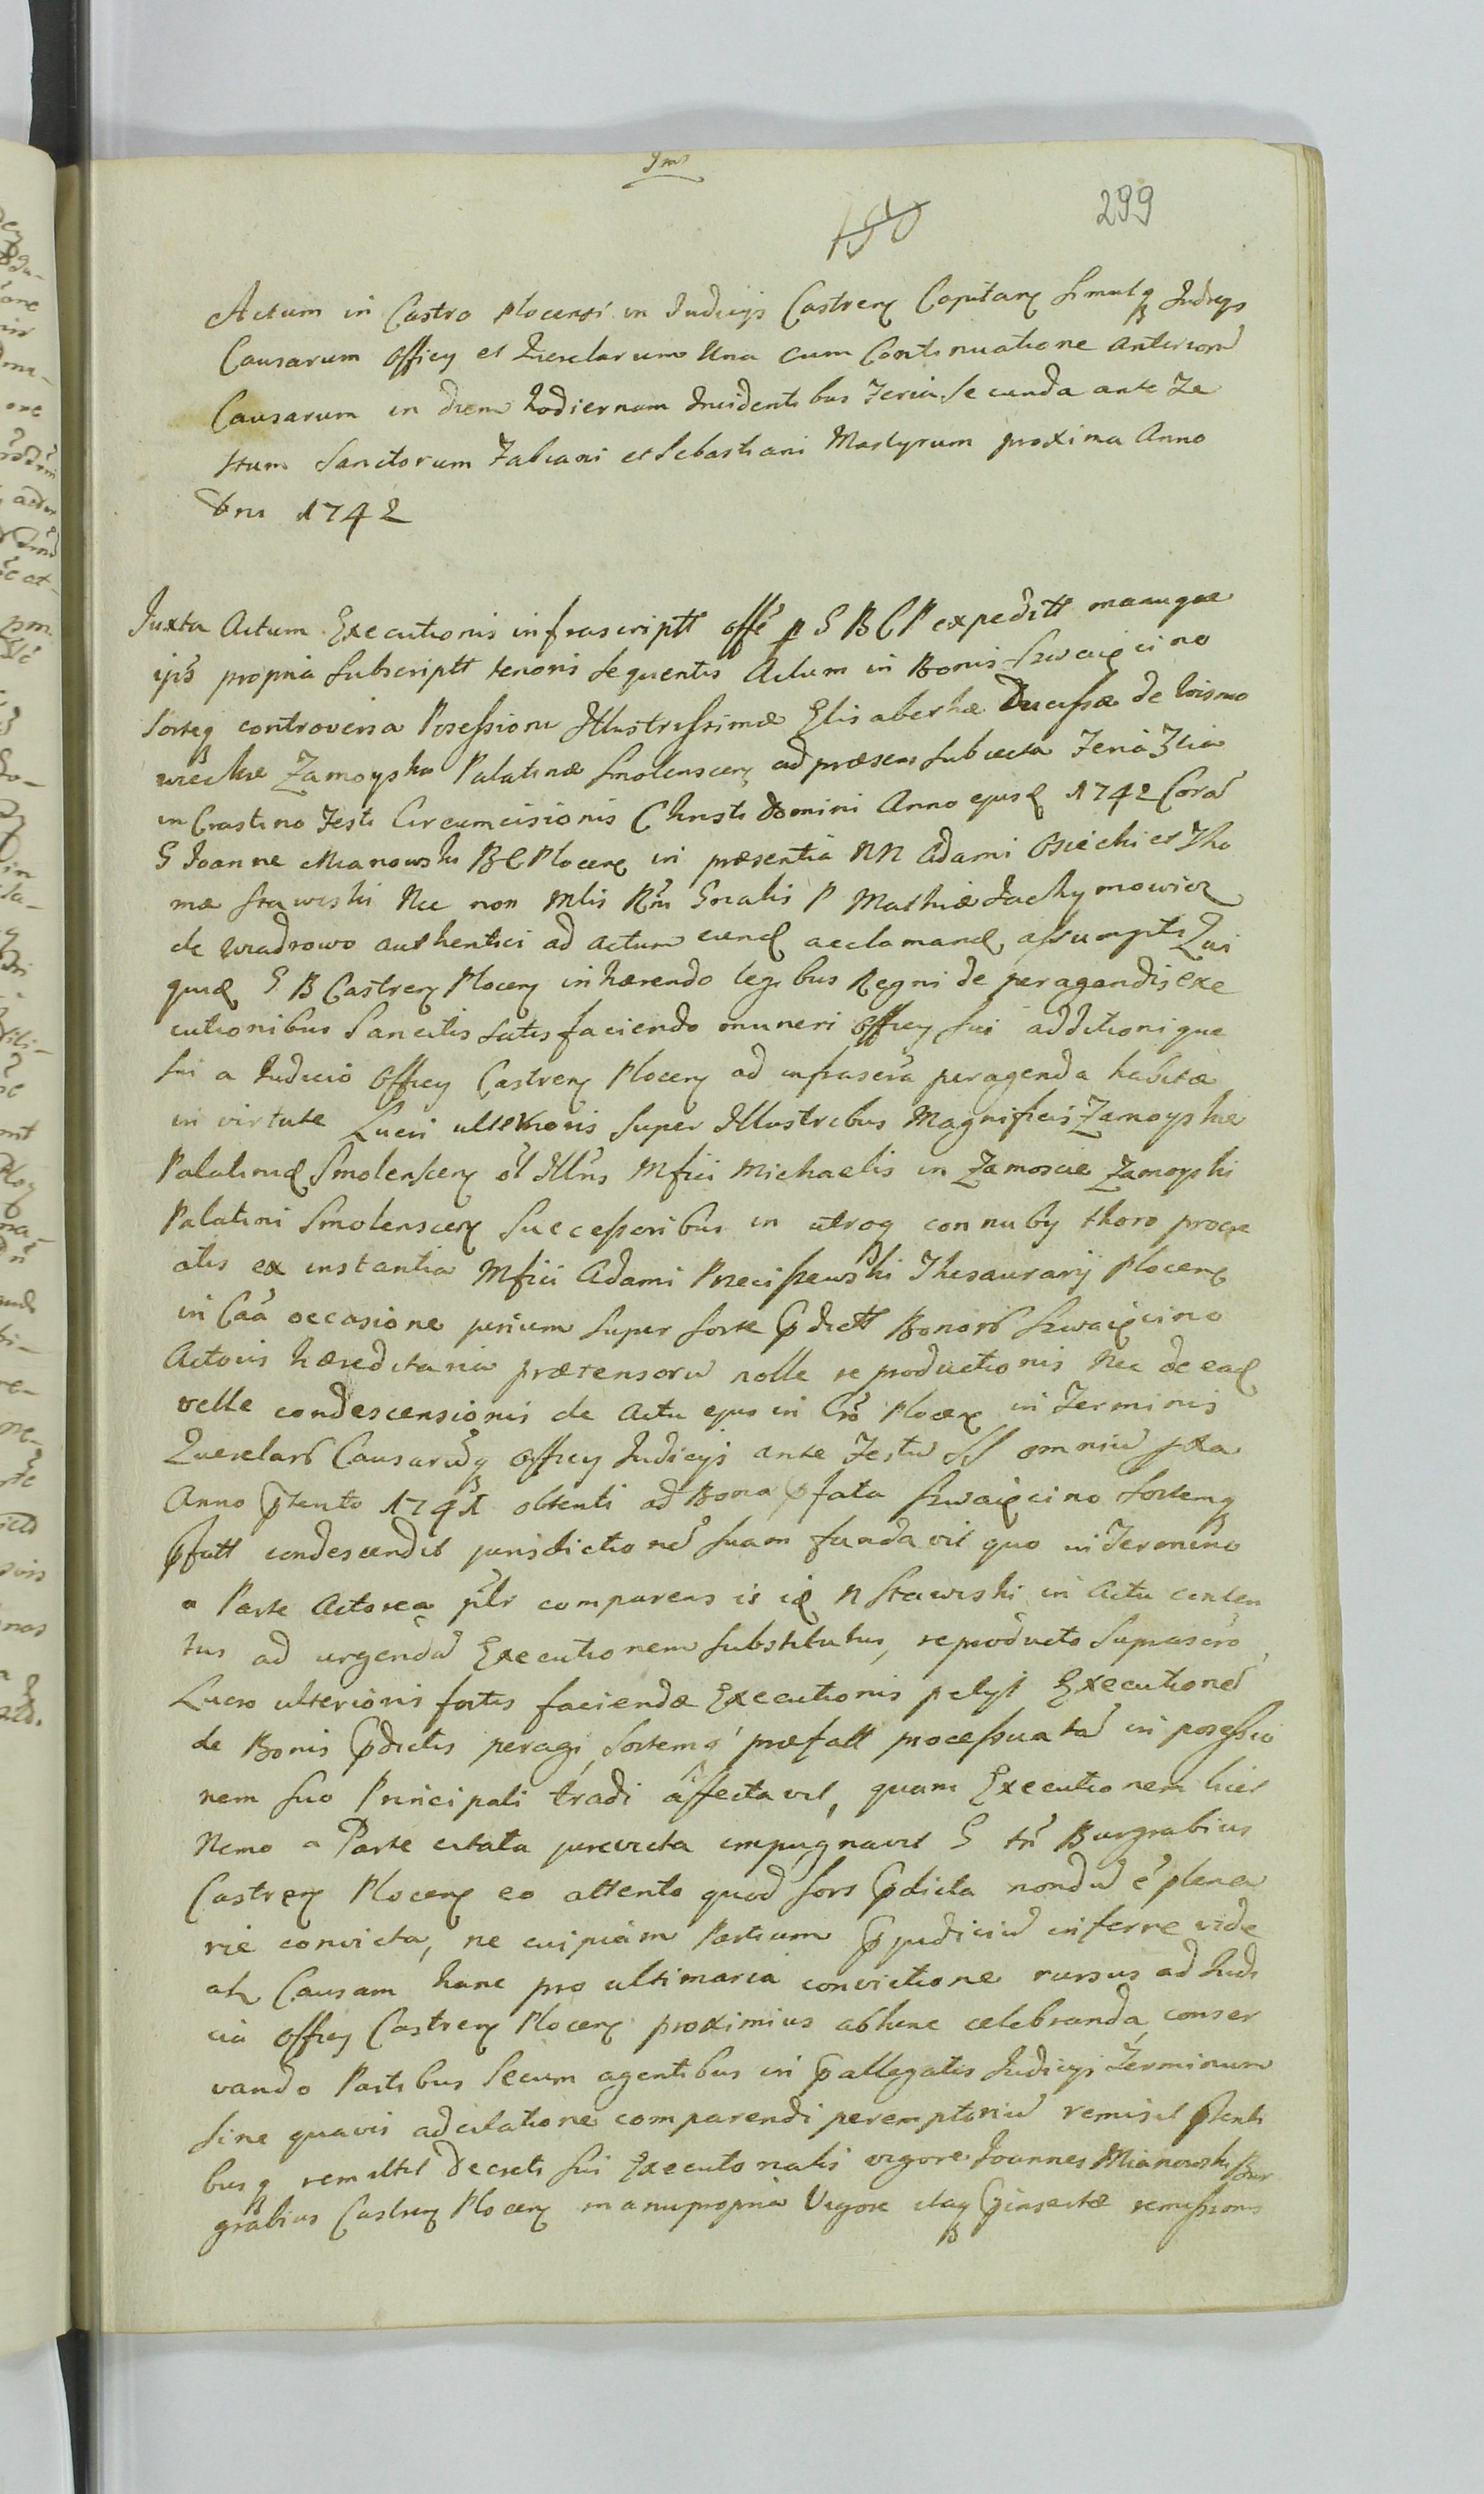 Ima
150
299
Actum in Castro Plocensi in Judicijs Castren Capitan simulq Judicijs
Causarum Officy et Querelarum Una cum Continuatione anteriorũ
Causarum in diem hodiernam Incidentibus Feria Secunda ante Fe
stum Sanctorum Fabiani et Sebastiani Martyrum proxima Anno
Dni 1742
Juxta Actum Executionis infrascriptt offe p G B C P expeditt manuque
ips propria Subscriptt tenoris Sequentis Actum in Bonis Szwaięcino
Sorteq controversa Possessioni Illustrissimæ Elisabethæ Ducissæ de Wisnio
wieckie Zamoyska Palatinæ Smolenscen ad præsens subiecta Feria 3tia
in Crastino Festi Circumcisionis Christi Domini Anno ejusd 1742 Corã
G Joanne Mianowski B C Plocen in præsentia NN Adami Osiecki et Tho
mæ Stawiski Nec non Mlis Rni Gnalis P Mathiæ Jachymowicz
de Wiadrowo authentici ad actum eund acclamand assumpti Qui
quid G B Castren Plocen inhærendo legibus Regni de peragendis exe
cutionibus Sancitis satisfaciendo muneri Officy sui additionique
sui a Judicio Officy Castren Plocen ad infrascra peragenda habitæ
in virtute Lucri ulterioris super Illustribus Magnificis Zamoyskie
Palatinid Smolenscen ol Illris Mfici Michaelis in Zamoscie Zamoyski
Palatini Smolenscen Successoribus in utroq connuby thoro procre
atis ex instantia Mfici Adami Przeciszewski Thesaurarij Plocen
in Caã occasione jurium super sorte pdictt Bonorũ Szwaięcino
Actoris hæreditaria prætensorũ nolle reproductionis Nec de ead
velle condescensionis de Actu ejus in Cro Plocen in Terminis
Querelarũ Causarũq Officy Judicijs ante Festũ SS omniũ pxa
Anno ptento 1741 obtenti ad Bona pfata Szwaięcino Sortemq
pfatt condescendit jurisdictionẽ suam fundavit quo in Termino
a Parte Actorea plr comparens is id N Stawiski in Actu conten
tus ad urgendã Executionem substitutus, reproducto Suprascro
Lucro ulterioris fortis faciendæ Executionis petijt Executionẽ
de Bonis pdictis peragi sortemq præfatt processuatã in possessio
nem suo Principali tradi affectavit, quam Executionem licet
Nemo a Parte citata jurevicta impugnavit G tñ Burgrabius
Castren Plocen eo attento quod sors pdicta nondũ ẽ plena
rie convicta, ne cuipiam Partium pjudiciũ inferre vide
atr Causam hanc pro ultimaria convictione rursus ad Judi
cia Officy Castren Plocen proximius abhinc celebranda, conser
vando Partibus Secum agentibus in pallegatis Judicijs Terminum
sine quavis adcitatione comparendi peremptoriũ remisit ptenti
busq remittit Decreti sui Executorialis vigore Joannes Mianowski Bur
grabius Castren Plocen manupropria Vigore itaq pinsertæ remissionis